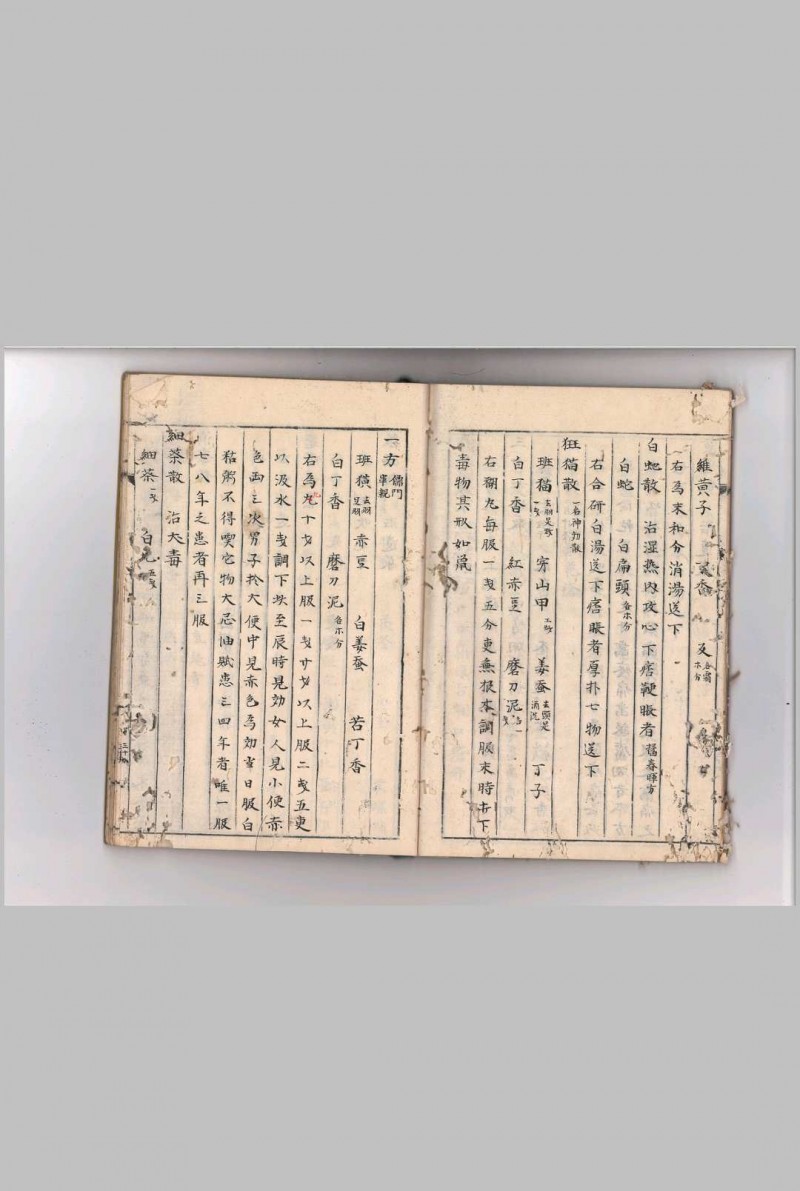 黄子
右為末和分消湯送下
白虵散 治湿熱内攻心下痞鞕脹者
白蛇 白扁頭 各等分
右合研白湯送下痞脹者厚朴七物送下
班猫散 一名神効散
班猫 去翅足 穿山甲 姜蚕 丁子
白丁香 紅赤豆 磨刀泥
右糊丸每服一匁五分 調服末時
毒物其形如鼠
一方 儒門事親
班猫 去翅足 赤豆 白姜蚕 苦丁香
白丁香 磨刀泥 各等分
右為 十才以上服一匁廿才以上服二匁五更
以汲水一 調下 至辰時見効女人見小便赤
色両三次男子於大便中見赤色為効 日服白
粘粥不得喫它物大忌油膩患三四年者唯一服
七八年之患者再三服
細茶散 治大毒
細茶 白